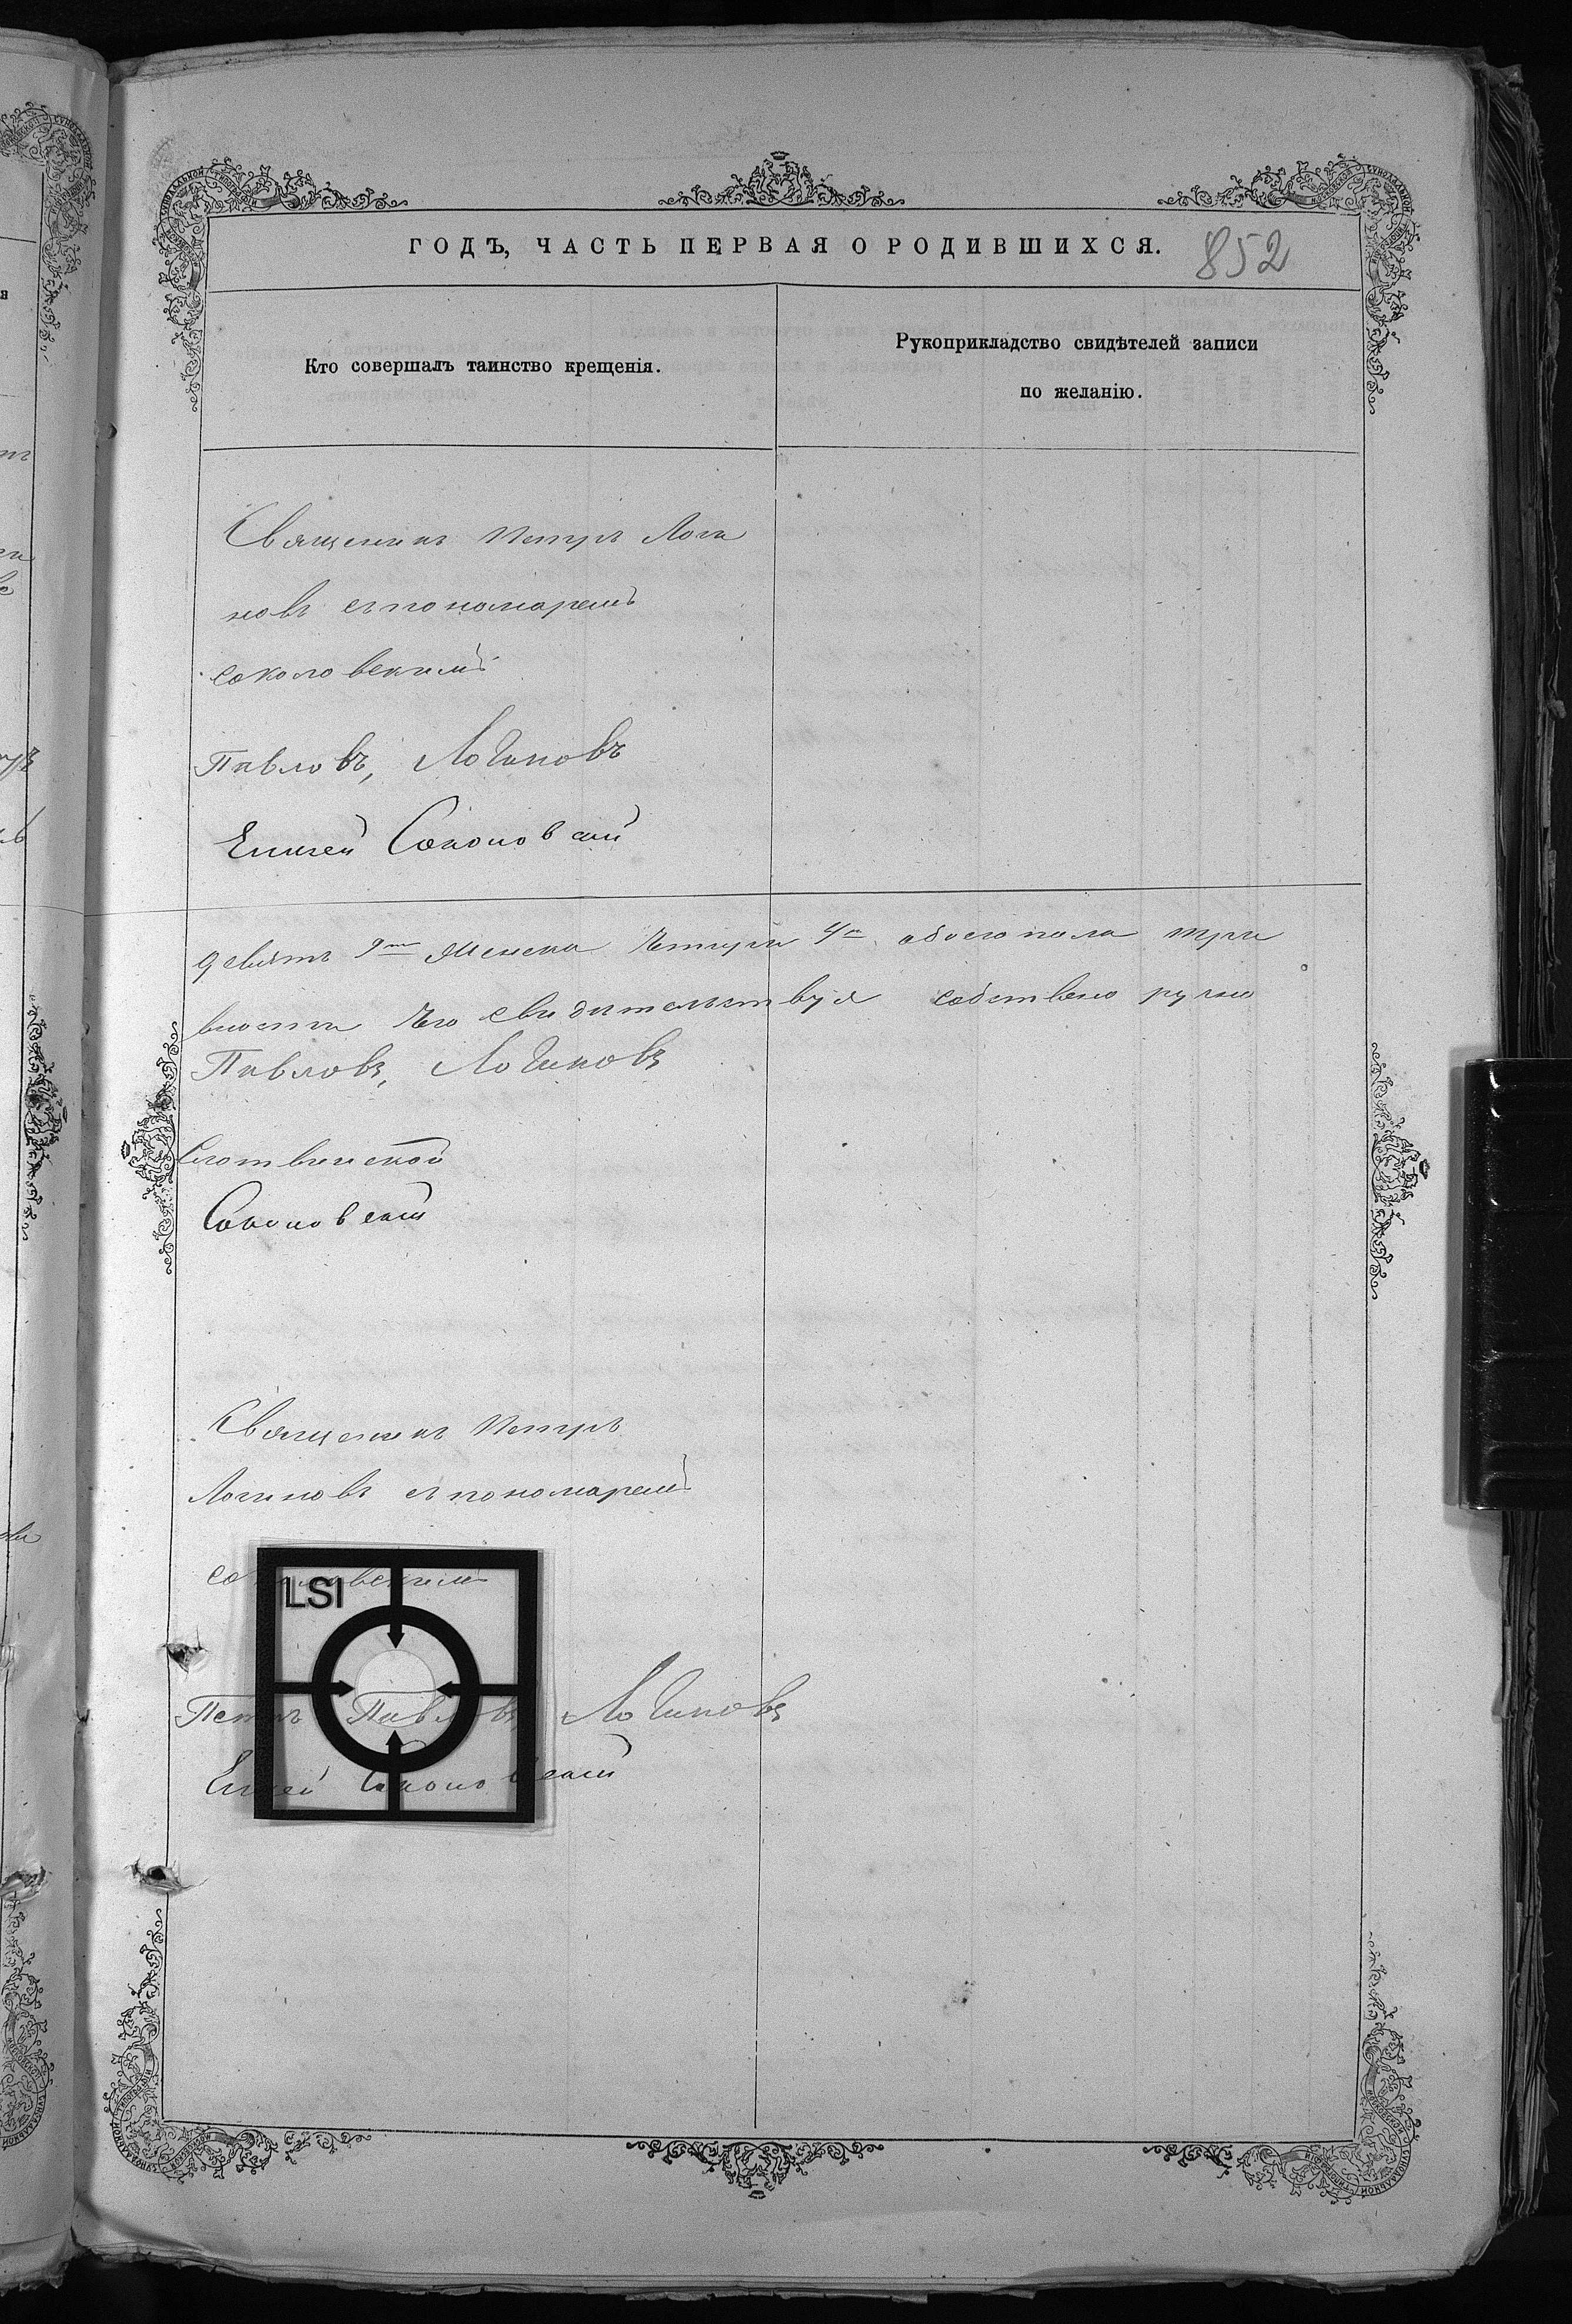 ГОДЪ, ЧАСТЬ ПЕРВАЯ О РОДИВШИХСЯ.
852
Кто совершалъ таинство крещенія.
Рукоприкладство свидѣтелей записи
по желанію.
Священикъ Петръ Логи
новъ съ пономаремъ
Соколовскимъ
Павловъ, Логиновъ
Елисей Соколовскій
девять 9ть женска четыри 4ри обоего пола три
Чего свидительствуя собствено ручно
Павловъ, Логиновъ
Соколовскій
Священикъ Петръ
Логиновъ съ пономаремъ
Соколовскимъ
LSI
Петръ Павловъ Логиновъ
Елисей Соколовскій